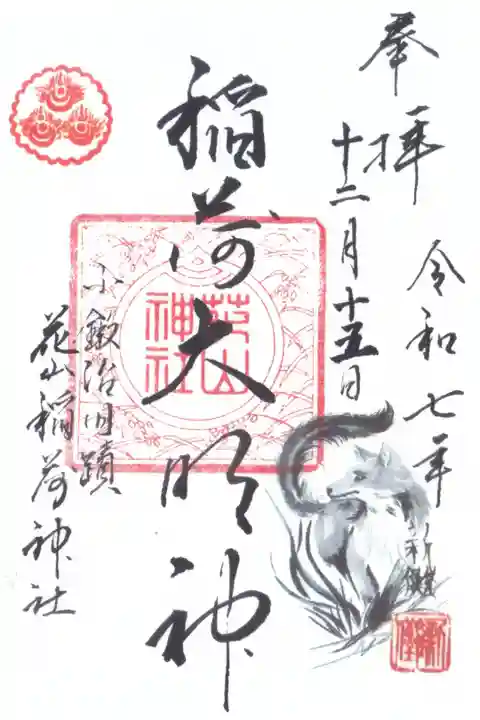 奉拝 令和七年
十二月十五日
稲荷大明神
花山
神社
小鍛冶旧蹟
花山稲荷神社